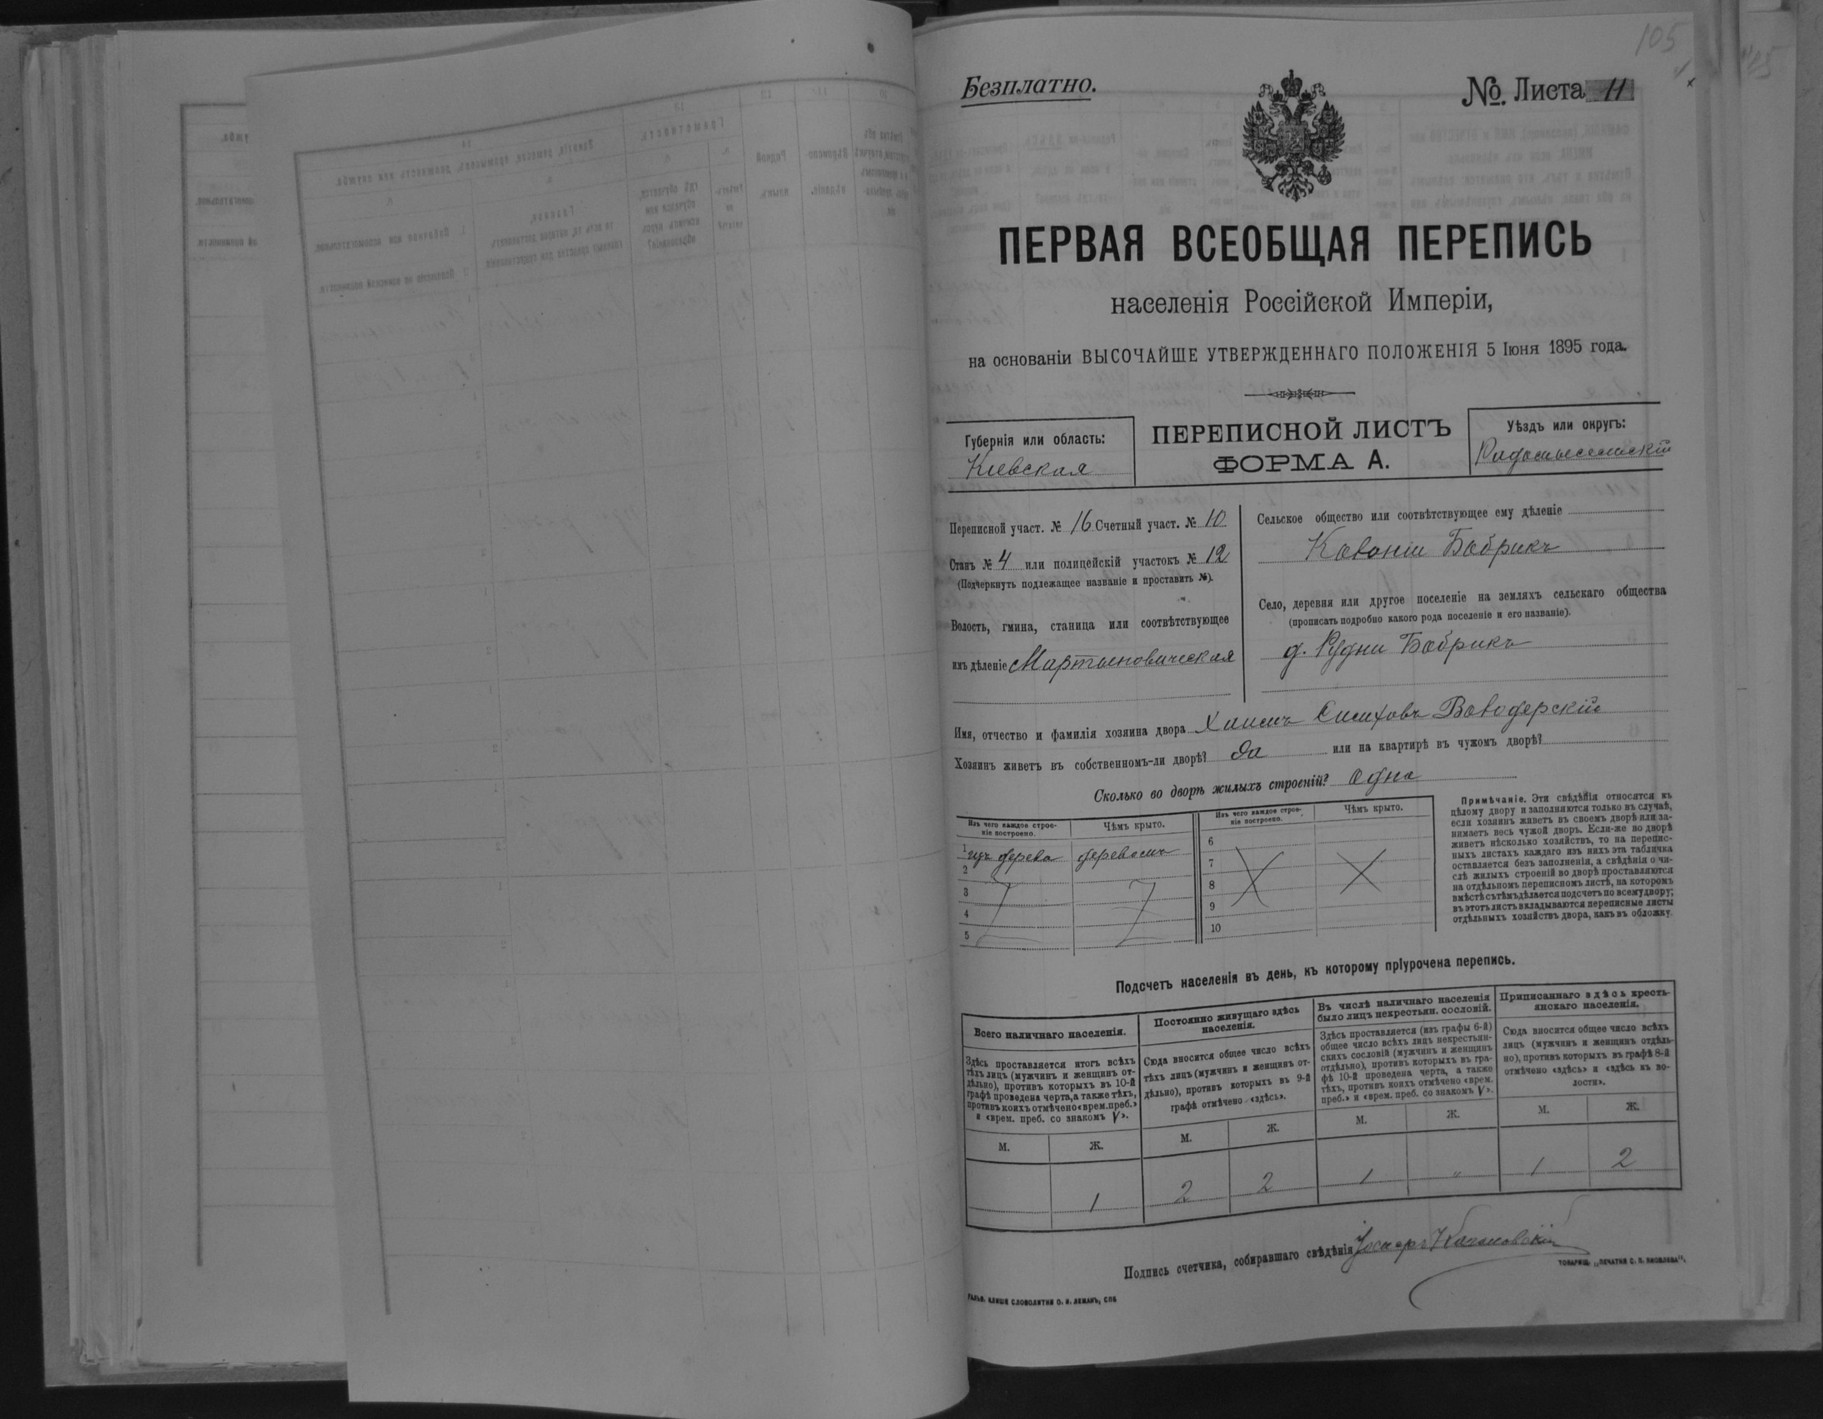 105
Безплатно.
№ Листа 11
ПЕРВАЯ ВСЕОБЩАЯ ПЕРЕПИСЬ
населенія Россійской Имперіи,
на основаніи ВЫСОЧАЙШЕ УТВЕРЖДЕННАГО ПОЛОЖЕНІЯ 5 Іюня 1895 года.
Губернія или область:
Кіевская
ПЕРЕПИСНОЙ ЛИСТЪ
ФОРМА А.
Уѣздъ или округъ:
Радомысльскій
Переписной участ. № 16 Счетный участ. № 10
Станъ № 4 или полицейскій участокъ № 12
(Подчеркнуть подлежащее названіе и проставить №).
Волость, гмина, станица или соотвѣтствующее
имъ дѣленіе Мартыновическая
Сельское общество или соотвѣтствующее ему дѣленіе
Бобрикъ
Село, деревня или другое поселеніе на земляхъ сельскаго общества
(прописать подробно какого рода поселеніе и его названіе).
д. Рудни Бобрикъ
Имя, отчество и фамилія хозяина двора
Хозяинъ живетъ въ собственномъ-ли дворѣ? Да или на квартирѣ въ чужомъ дворѣ?
Сколько во дворѣ жилыхъ строеній? одна
Изъ чего каждое строе-
ніе построено.
Чѣмъ крыто.
Изъ чего каждое строе-
ніе построено.
Чѣмъ крыто.
1 изъ дерева деревомъ
2
3
4
5
6
7
8
9
10
Примѣчаніе. Эти свѣдѣнія относятся къ
цѣлому двору и заполняются только въ случаѣ,
если хозяинъ живетъ въ своемъ дворѣ или за-
нимаетъ весь чужой дворъ. Если-же во дворѣ
живетъ нѣсколько хозяйствъ, то на перепис-
ныхъ листахъ каждаго изъ нихъ эта табличка
оставляется безъ заполненія, а свѣдѣнія о чи-
слѣ жилыхъ строеній во дворѣ проставляются
на отдѣльномъ переписномъ листѣ, на которомъ
вмѣстѣ съ тѣмъ дѣлается подсчетъ по всему двору;
въ этотъ листъ вкладываются переписные листы
отдѣльныхъ хозяйствъ двора, какъ въ обложку.
Подсчетъ населенія въ день, къ которому пріурочена перепись.
Всего наличнаго населенія.
Здѣсь проставляется итогъ всѣхъ
тѣхъ лицъ (мужчинъ и женщинъ от-
дѣльно), противъ которыхъ въ 10-й
графѣ проведена черта, а также тѣхъ,
противъ коихъ отмѣчено «врем. преб.»
и «врем. преб. со знакомъ V».
М. Ж.
1
Постоянно живущаго здѣсь
населенія.
Сюда вносится общее число всѣхъ
тѣхъ лицъ (мужчинъ и женщинъ от-
дѣльно), противъ которыхъ въ 9-й
графѣ отмѣчено «здѣсь».
М. Ж.
2 2
Въ числѣ наличнаго населенія
было лицъ некрестьян. сословій.
Здѣсь проставляется (изъ графы 6-й)
общее число всѣхъ лицъ некрестьян-
скихъ сословій (мужчинъ и женщинъ
отдѣльно), противъ которыхъ въ гра-
фѣ 10-й проведена черта, а также
тѣхъ, противъ коихъ отмѣчено «врем.
преб.» и «врем. преб. со знакомъ V».
М. Ж.
1 „
Приписаннаго здѣсь кресть-
янскаго населенія.
Сюда вносится общее число всѣхъ
лицъ (мужчинъ и женщинъ отдѣль-
но), противъ которыхъ въ графѣ 8-й
отмѣчено «здѣсь» и «здѣсь къ во-
лости».
М. Ж.
1 2
Подпись счетчика, собиравшаго свѣдѣнія
ТОВАРИЩ. „ПЕЧАТНЯ С. П. ЯКОВЛЕВА".
ГАЛЬВ. КЛИШЕ СЛОВОЛИТНИ О. И. ЛЕМАНЪ, СПБ